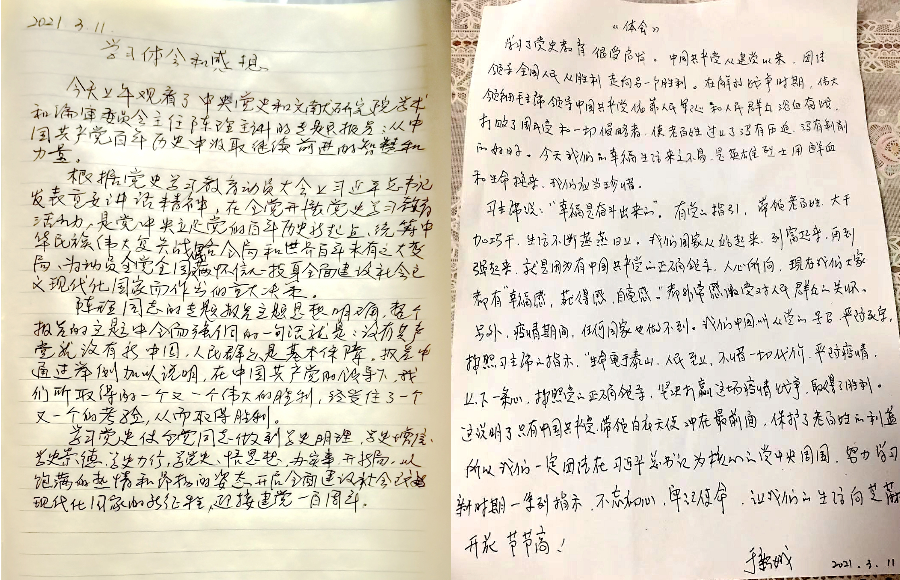 2021.3.11
学习体会和感想
今天上午观看了中央党史和文献研究院学术
和编审委员会主任陈理主讲的专题报告：从中
国共产党百年历史中汲取继续前进的智慧和
力量。
根据党史学习教育动员大会上习近平总书记
发表重要讲话精神，在全党开展党史学习教育
活动，是党中央立足党的百年历史新起点，统筹中
华民族伟大复兴战略全局和世界百年未有之大变
局、为动员全党全国满怀信心投身全面建设社会主
义现代化国家而作出的重大决策。
陈理同志的专题报告主题鲜明正确，整个
报告的主题中心而强调的一句话就是：没有共产
党就没有新中国，人民群众是基本保障。报告中
通过举例加以说明，在中国共产党的领导下，我
们所取得的一个又一个伟大的胜利，经受住了一个
又一个的考验，从而取得胜利。
学习党史使全党同志做到学史明理，学史增信、
学史崇德、学史力行，学党史、悟思想、办实事、开新局，以
饱满的热情和昂扬的姿态开启全面建设社会主义
现代化国家的新征程，迎接建党一百周年。
《体会》
学习了党史教育 倍受启发。中国共产党从建党以来，团结
领导全国人民从胜利走向另一个胜利。在解放战争时期，伟大
领袖毛主席领导中国共产党依靠人民军队和人民群众浴血奋战，
打败了国民党和一切侵略者，使老百姓过上了没有压迫，没有剥削
的好日子。今天我们的幸福生活来之不易，是英雄烈士用鲜血
和生命换来，我们应当珍惜。
习主席说：“幸福是奋斗出来的”。有党的指引，带领老百姓，大干
加巧干，生活不断蒸蒸日上。我们国家从站起来，到富起来，再到
强起来，就是因为有中国共产党的正确领导，人心所向，现在我们大家
都有“幸福感，获得感，自豪感。”都非常感激党对人民群众的关怀。
另外，疫情期间，任何国家也做不到。我们中国听从党的号召，严防死守，
按照习主席的指示，“生命重于泰山，人民至上，不惜一切代价，严防疫情，
上下一条心，按照党的正确领导，坚决打赢这场疫情战争，取得了胜利。
这说明了只有中国共产党，带领白衣天使冲在最前面，保护了老百姓的利益
所以我们一定团结在习近平总书记为核心的党中央周围，努力学习
新时期一系列指示，不忘初心，牢记使命，让我们的生活向芝麻
开花 节节高！
2021.3.11